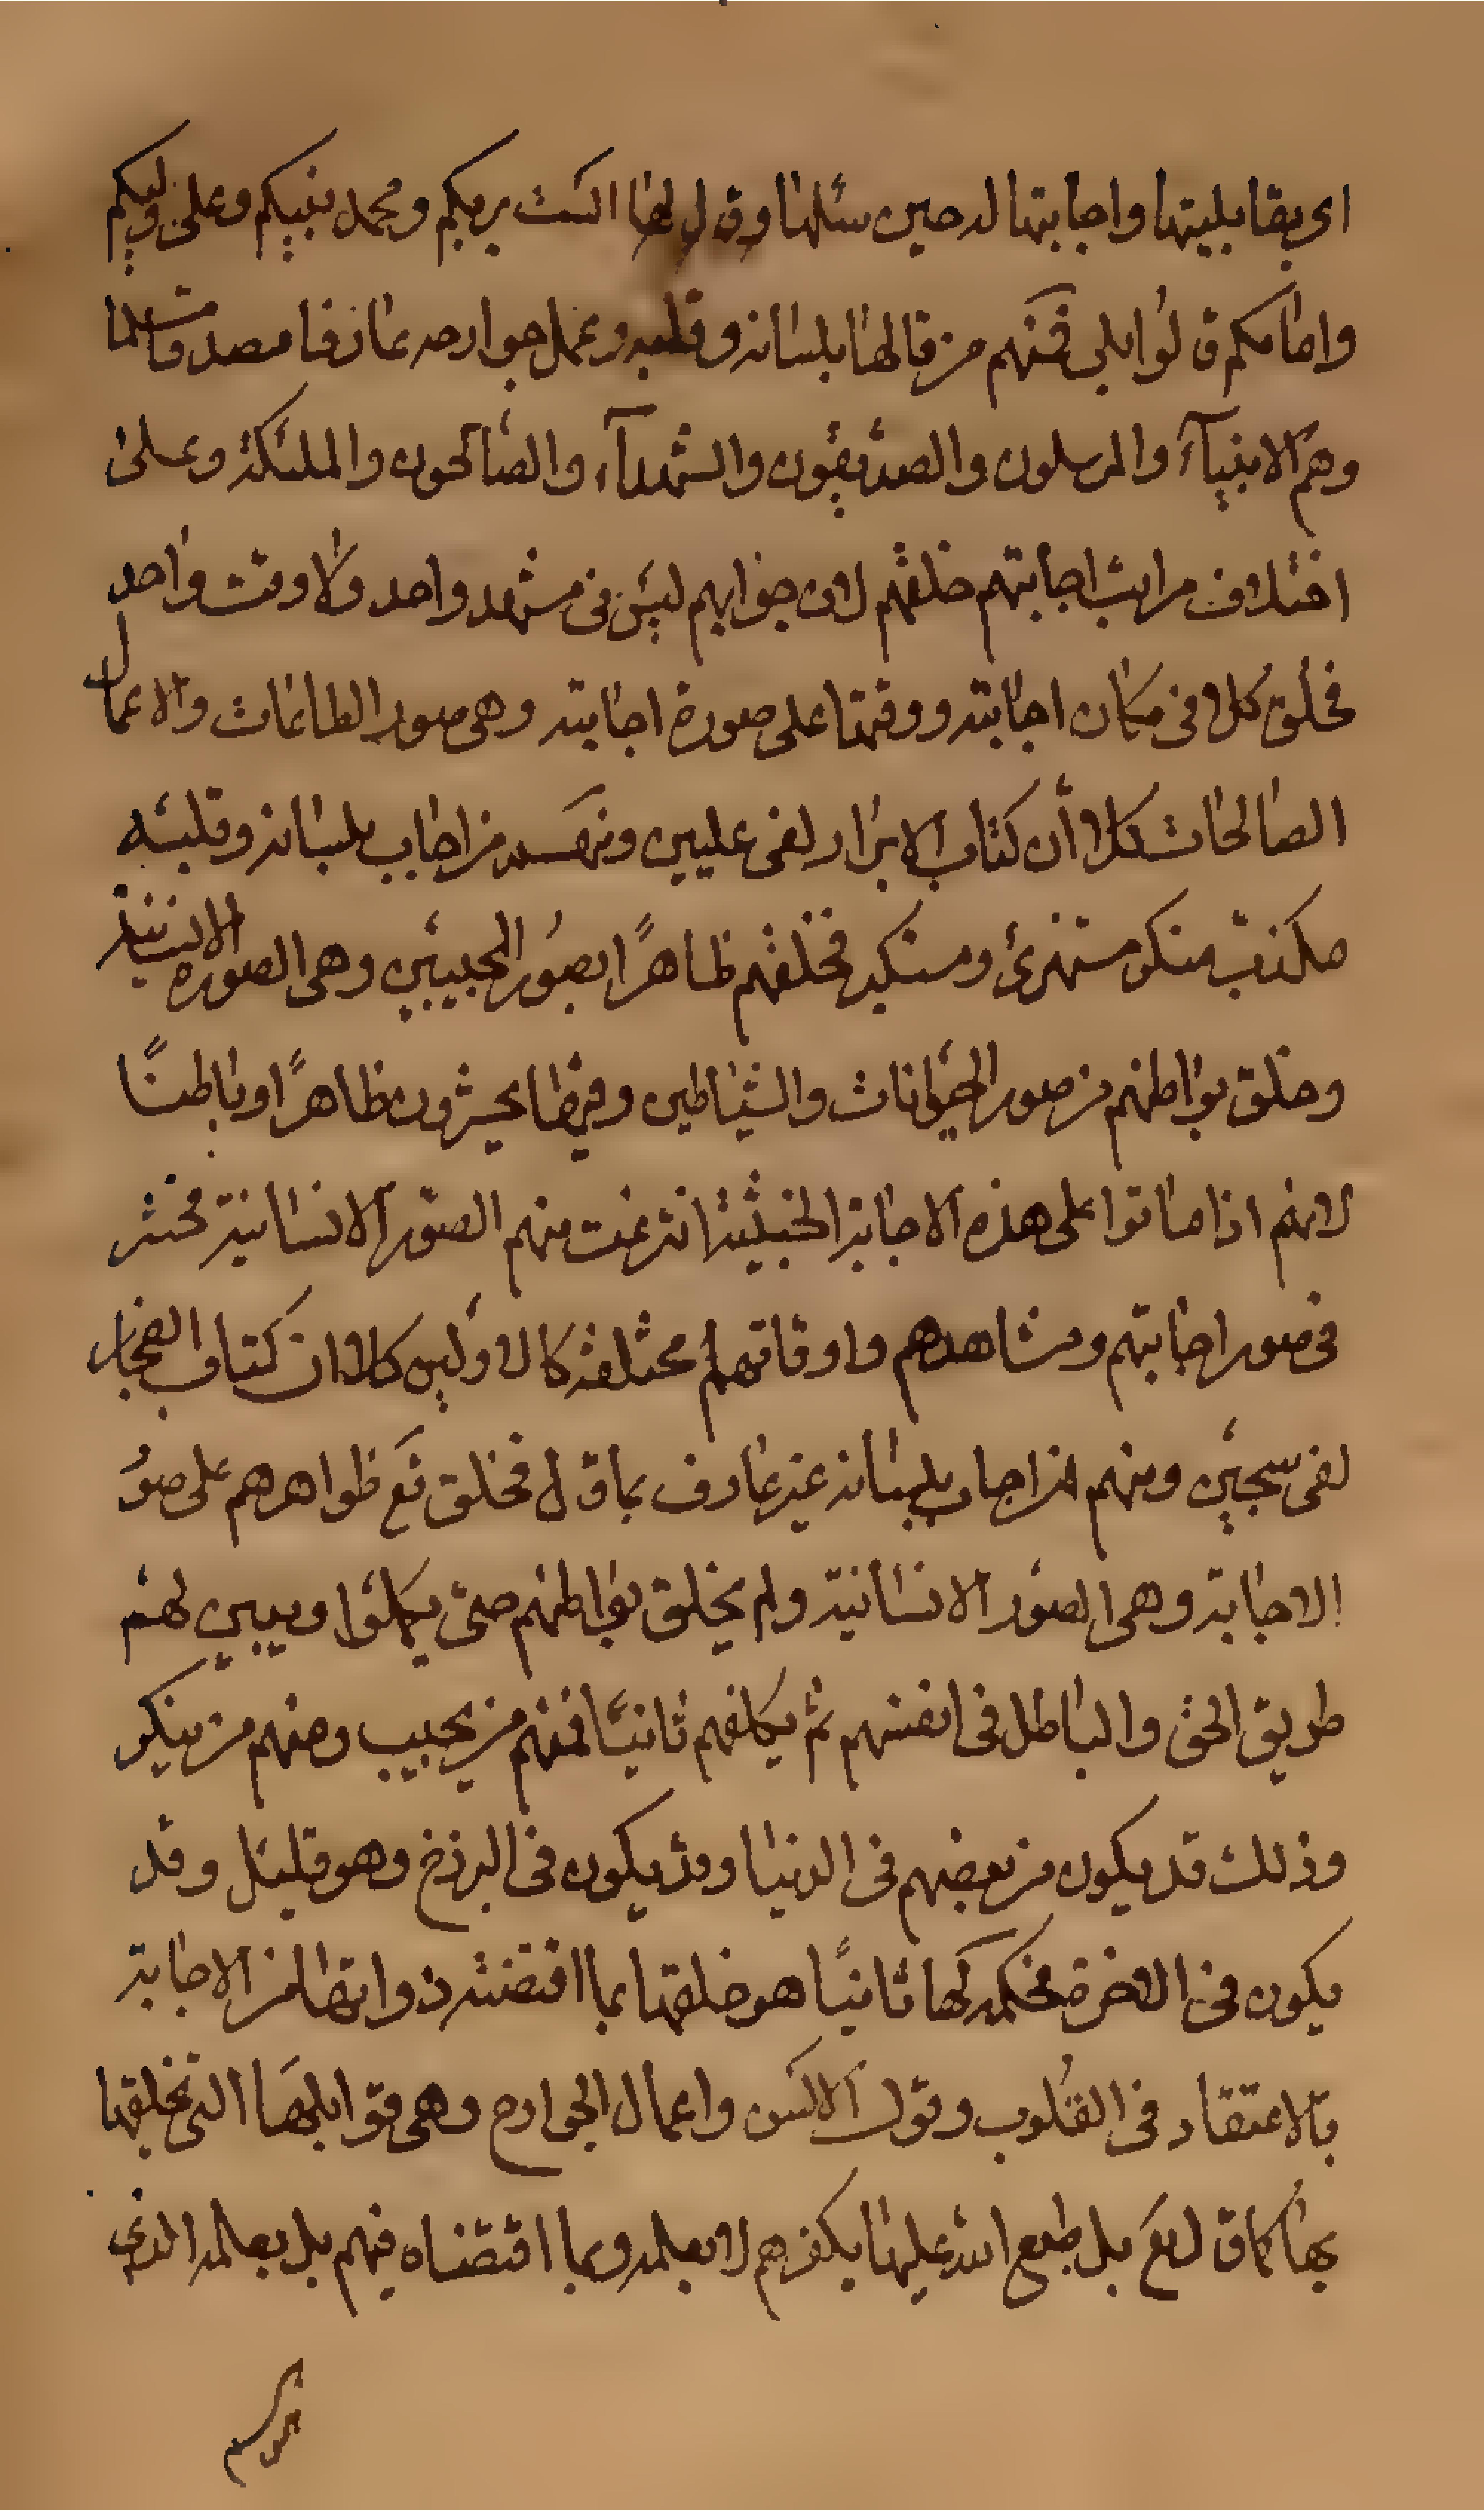 اى بقابليتها واجابتها له حين سئلها وق ل لها الست بربكم ومحمد نبيكم وعلى وليكم
وامامكم ق لوا بلى فمنهم من قالها بلسانه وقلبه وعمل جوارحه عارفا مصدقا مسلما
وهم الانبيآء والمرسلون والصديقون والشهدآء والصالحون والملئكة وعلى
اختلاف مراتب اجابتهم خلقهم لان جوابهم ليس فى مشهد واحد ولا وقت واحد
فخلق كلا فى مكان اجابته ووقتها على صورة اجابته وهى صور الطاعات والاعمال
الصالحات كلا أن كتاب الابرار لفى عليين ومنهم من اجاب بلسانه وقلبه
مكذب منكر مستهزئ ومستكبر فخلقهم ظاهرًا بصُور المجيبين وهى الصورة الانسانية
وخلق بواطنهم من صور الحيوانات والشياطين وفيها يحشرون ظاهرًا وباطنًا
لانهم اذا ماتوا على هذه الاجابة الخبيثة انتزعت منهم الصّور الانسانية فحشر
فى صور اجابتهم ومشاهدهم واوقاتهم مختلفة كالاولين كلا ان كتاب الفجار
لفى سجين ومنهم من اجاب بلسانه غير عارف بما ق ل فخلق تع ظواهرهم على صوُ
الاجابة وهى الصور الانسانية ولم يخلق بواطنهم حتى يكملوا ويبين لهم
طريق الحق والباطل فى انفسهم ثم يكلفهم ثانيًا فمنهم من يجيب ومنهم من ينكر
وذلك قد يكون من بعضهم فى الدنيا وقد يكون فى البرزخ وهو قليل وقد
يكون فى الاخرة فحكمه لها ثانيًا هو خلقها بما اقتضته ذواتها من الاجابة
بالاعتقاد فى القلوب وقول الالسن واعمال الجوارح وهى قوابلها التى خلقها
بها كما ق ل تع بل طبع الله عليها بكفرهم لا بعلمه وبما اقتضاه فيهم بل بعلمه الذى